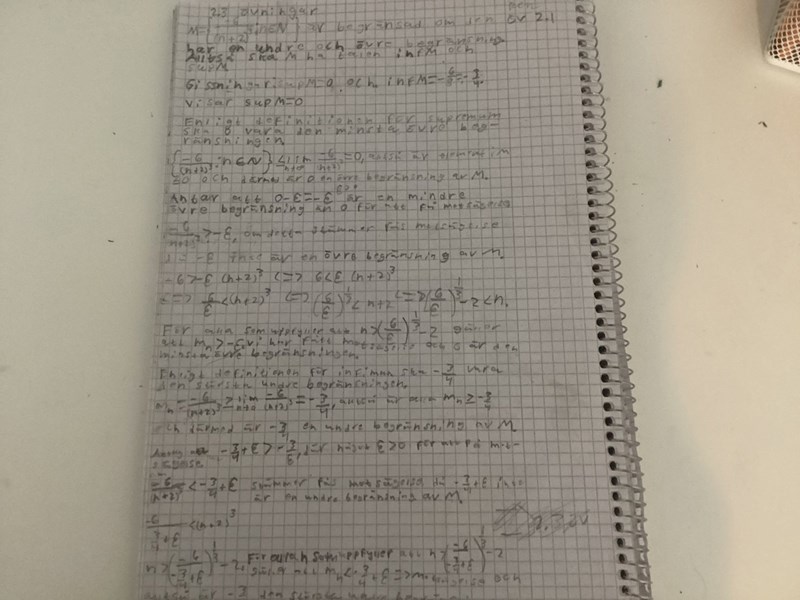 2.3 övningar
M={-6/(n+2)³: n∈N} är begränsad om den övr 2.1
har en undre och övre begränsning
Alltså ska M ha både infM och
supM
Gissning är supM=0 och infM=-6/8=-3/4.
Visar supM=0
Enligt definitionen för supremum
ska 0 vara den minsta övre beg-
ränsningen.
{-6/(n+2)³: n∈N} ≤ lim -6/(n+2)³=0, alltså är elementen
≤0 och därmed är 0 en övre begränsning av M.
Antar att 0-ε=-ε är en mindre
övre begränsning än 0 för att få motsägelse
-6/(n+2)³>-ε, om detta stämmer fås motsägelse
-ε inte är en övre begränsning av M.
-6>-ε(n+2)³ <=> 6<ε(n+2)³
<=> 6/ε<(n+2)³ <=> (6/ε)^1/3<n+2 <=> (6/ε)^1/3-2<n.
För alla n som uppfyller att n>(6/ε)^1/3-2 gäller
att mₙ>-ε, vi har fått motsägelse och 0 är den
minsta övre begränsningen.
Enligt definitionen för infimum ska -3/4 vara
den största undre begränsningen.
mₙ=-6/(n+2)³≥lim -6/(n+2)³=-3/4, alltså är alla mₙ≥-3/4
och därmed är -3/4 en undre begränsning av M.
-3/4+ε>-3/4, där något ε>0 för att få mot-
sägelse
-6/(n+2)³<-3/4+ε stämmer fås motsägelse då -3/4+ε inte
är en undre begränsning av M.
-6/(-3/4+ε)<(n+2)³
n>(-6/(-3/4+ε))^1/3-2. För alla n som uppfyller att n>(-6/(-3/4+ε))^1/3-2
gäller att mₙ<-3/4+ε => motsägelse och
alltså är -3/4 den största undre